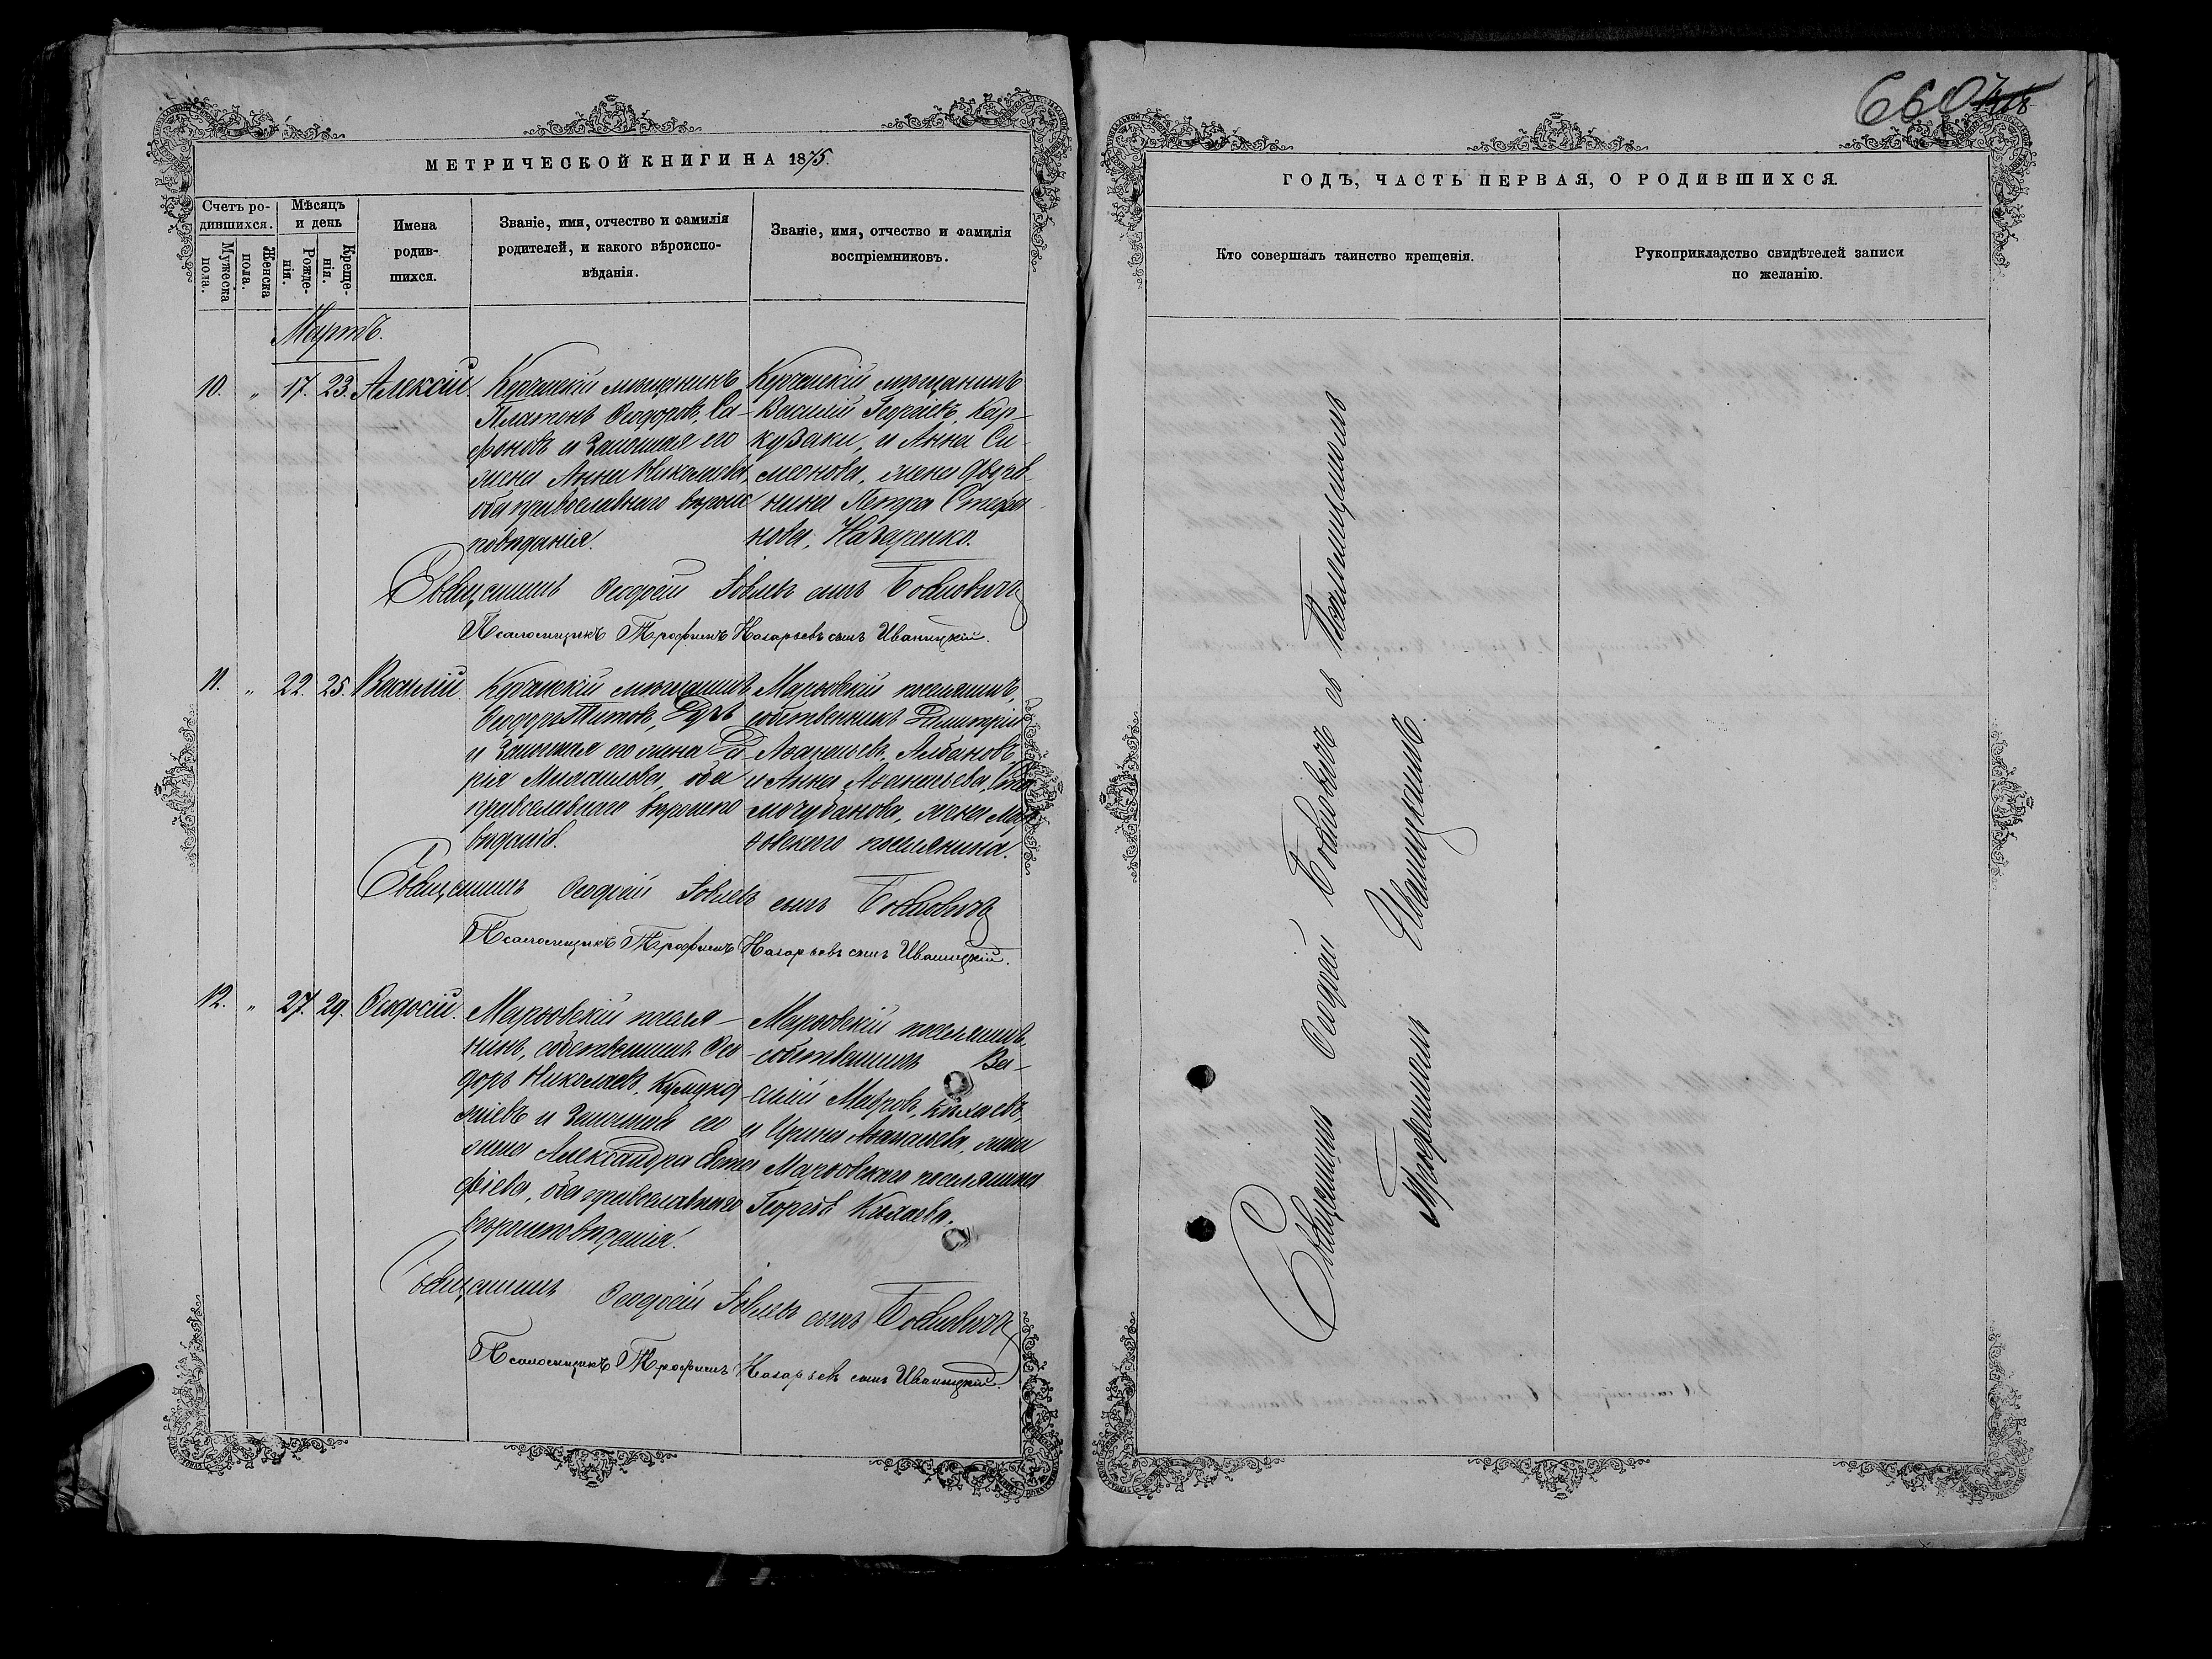 МЕТРИЧЕСКОЙ КНИГИ НА 1875.
Счетъ ро-
дившихся.
Мужеска
пола.
Женска
пола.
Мѣсяцъ
и день
Рожде-
нія.
Креще-
нія.
Имена
родив-
шихся.
Званіе, имя, отчество и фамилія
родителей, и какого вѣроиспо-
вѣданія.
Званіе, имя, отчество и фамилія
воспріемниковъ.
Мартъ.
10. " 17. 23. Алексій.
Керченскій мѣщанинъ
Платонъ Ѳеодоровъ, Са-
фоновъ и законная его
жена Анна Николаева,
оба православнаго вѣроис
повѣданія.
Керченскій мѣщанинъ
Василій Георгіевъ, Кар-
кузаки, и Анна Си-
меонова, жена дворя-
нина Петра Стефа-
нова, Назаренко.
Священникъ Ѳеодосій Іовлевъ сынъ
Псаломщикъ Трофимъ Назарьевъ сынъ Иваницкій.
11. " 22. 25. Василій
Керченскій мѣщанинъ
Ѳеодоръ Титовъ,
и законная его жена Да-
рія оба
православнаго вѣроиспо-
вѣданія.
Марѳовскій поселянинъ,
собственникъ Димитрій
Аѳанасьевъ, Албановъ,
и Анна Аѳанасьева,
жена Мар
ѳовскаго поселянина.
Священникъ Ѳеодосій Іовлевъ сынъ
Псаломщикъ Трофимъ Назарьевъ сынъ Иваницкій.
12. " 27. 29. Ѳеодосій.
Марѳовскій поселя-
нинъ, собственникъ Ѳео-
доръ Николаевъ,
и законная его
жена Александра
оба православнаго
вѣроисповѣданія.
Марѳовскій поселянинъ,
собственникъ Ва-
силій Мавровъ, Кихаевъ,
и Ирина Аѳанасьева, жена
Марѳовскаго поселянина
Георгія Кихаева.
Священникъ Ѳеодосій Іовлевъ сынъ
Псаломщикъ Трофимъ Назарьевъ сынъ Иваницкій.
660
ГОДЪ, ЧАСТЬ ПЕРВАЯ, О РОДИВШИХСЯ.
Кто совершалъ таинство крещенія.
Рукоприкладство свидѣтелей записи
по желанію.
Священникъ Ѳеодосій съ Псаломщикомъ
Трофимомъ Иваницкимъ.